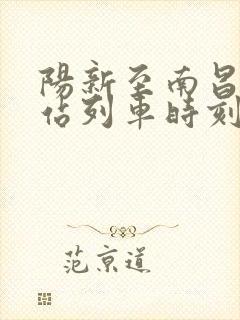 陽新至南昌
佔列車時刻
范京道